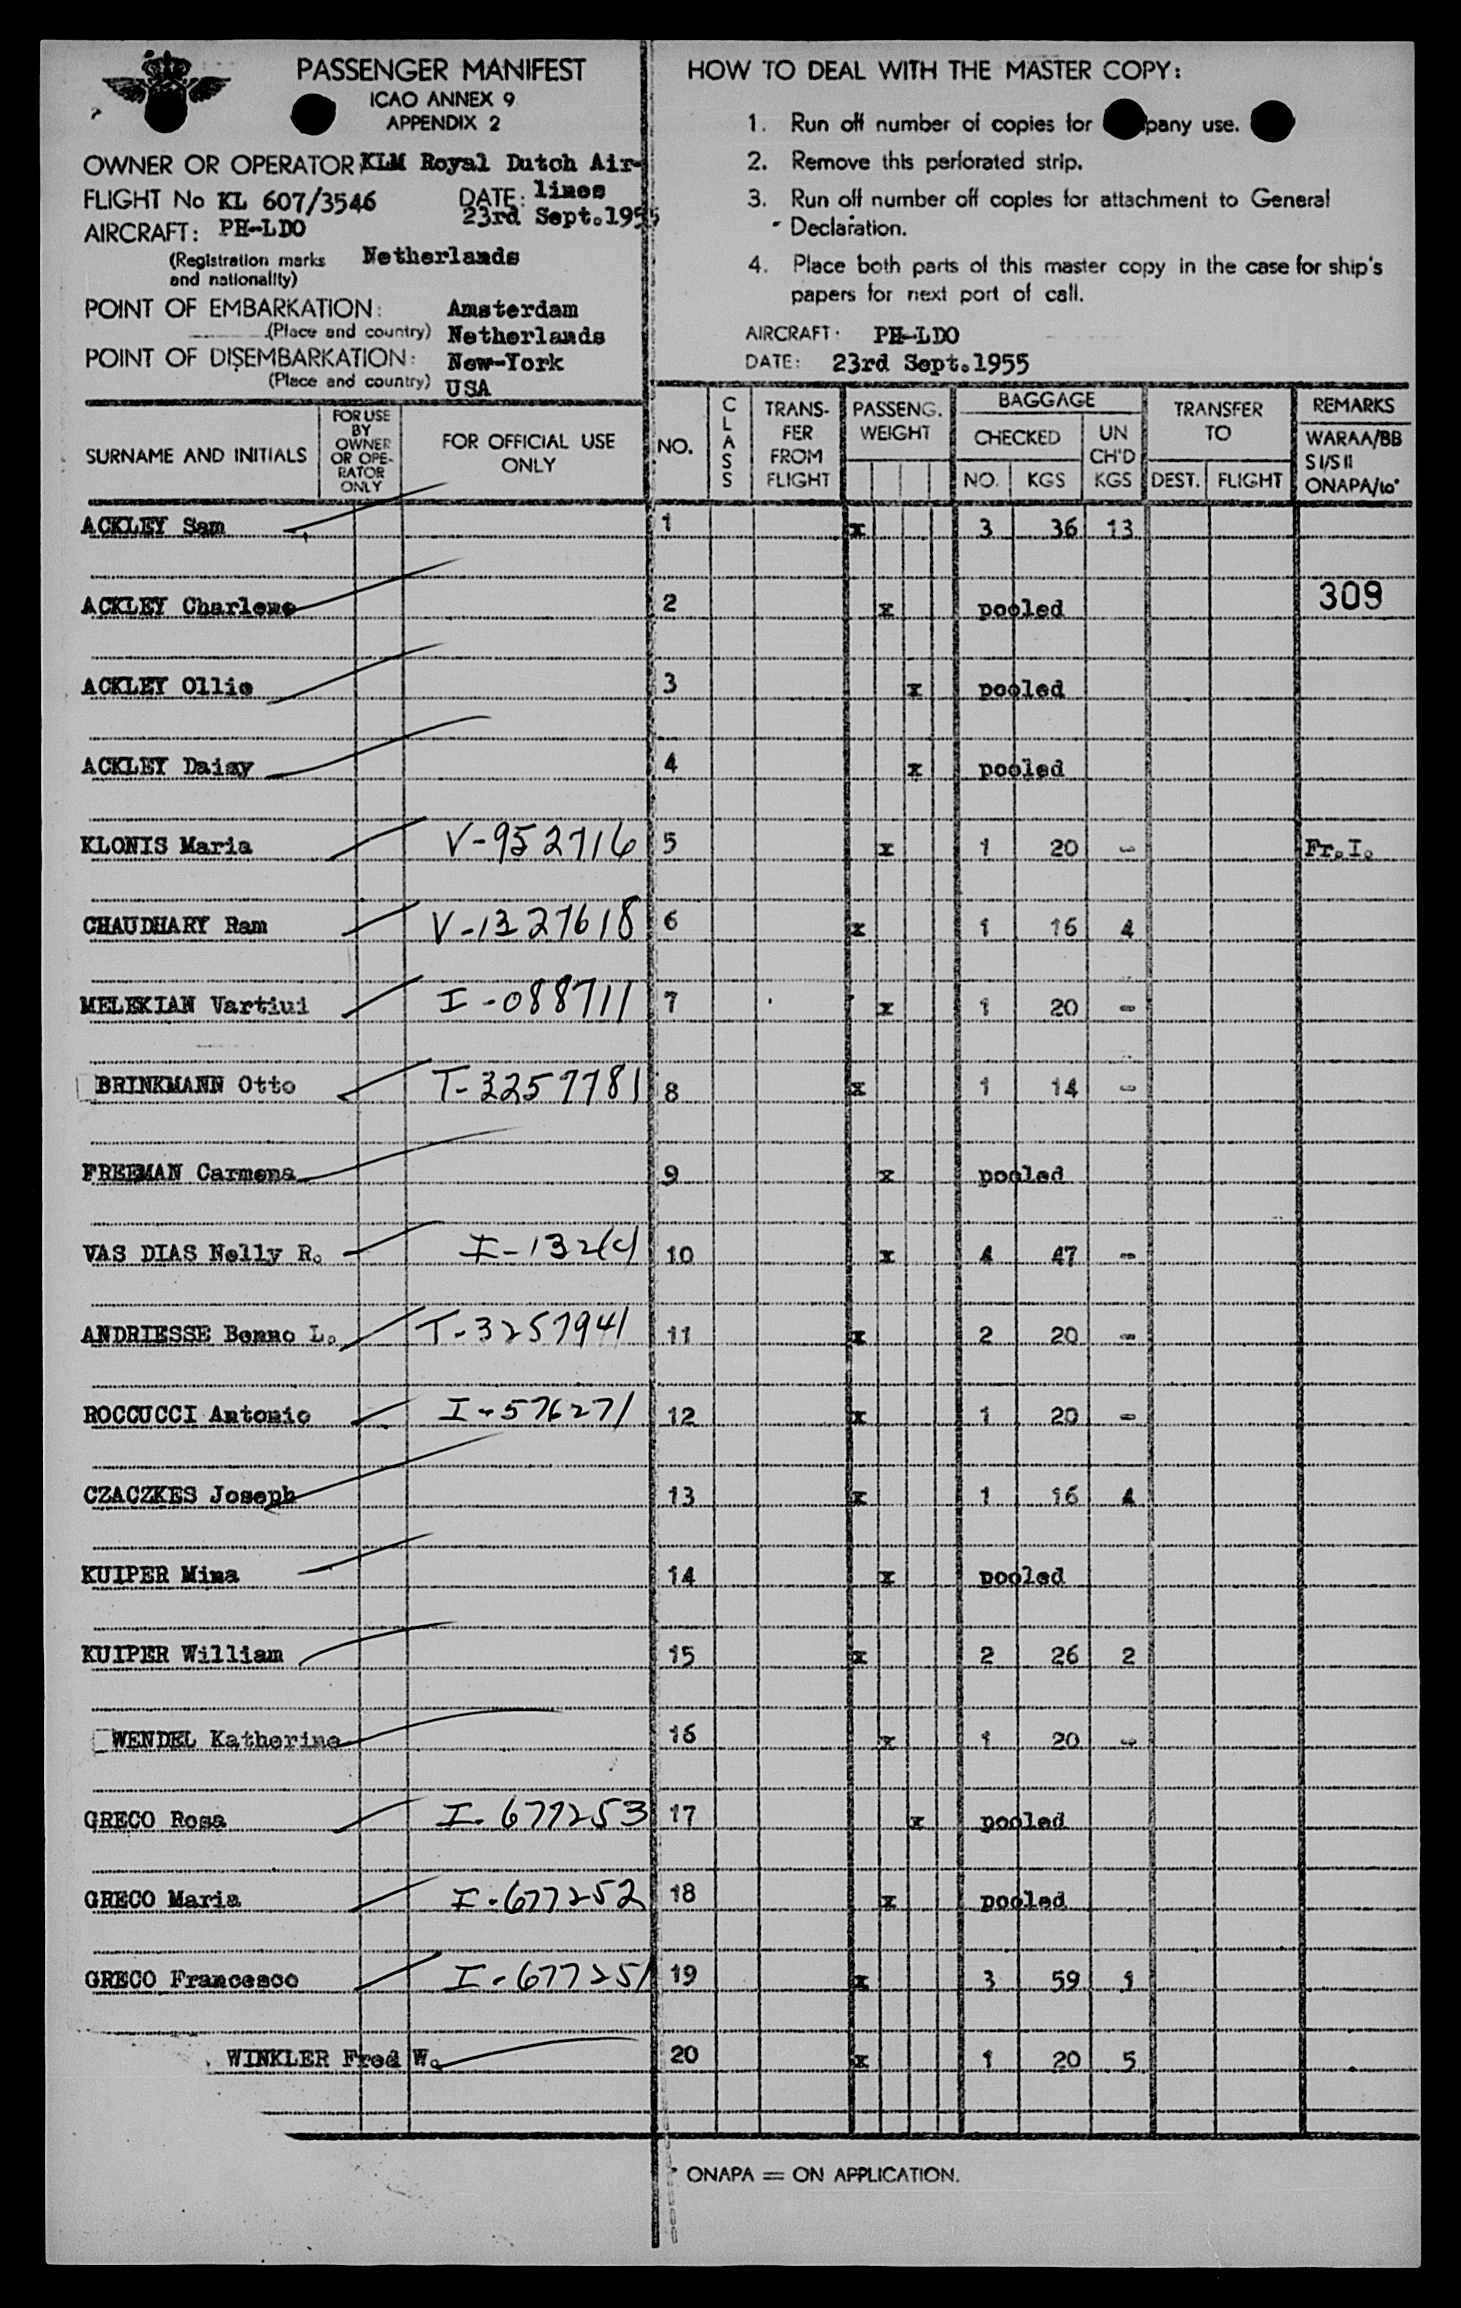 PASSENGER MANIFEST
ICAO ANNEX 9
APPENDIX 2
OWNER OR OPERATOR: KLM Royal Dutch Air-
lines
FLIGHT No KL 607/3546 DATE: 23rd Sept.1955
AIRCRAFT: PH-LDO
(Registration marks and nationality) Netherlands
POINT OF EMBARKATION: Amsterdam
(Place and country) Netherlands
POINT OF DISEMBARKATION: New-York
(Place and country) USA
HOW TO DEAL WITH THE MASTER COPY:
1. Run off number of copies for pany use.
2. Remove this perforated strip.
3. Run off number off copies for attachment to General
Declaration.
4. Place both parts of this master copy in the case for ship's
papers for next port of call.
AIRCRAFT: PH-LDO
DATE: 23rd Sept.1955
SURNAME AND INITIALS FOR USE BY OWNER OR OPE-RATOR ONLY FOR OFFICIAL USE ONLY NO. CLASS TRANS-FER FROM FLIGHT PASSENG. WEIGHT BAGGAGE CHECKED NO. KGS UN CH'D KGS TRANSFER TO DEST. FLIGHT REMARKS WARAA/BB SI/SII ONAPA/to*
ACKLEY Sam 1 x 3 36 13
ACKLEY Charlene 2 x pooled 309
ACKLEY Ollie 3 x pooled
ACKLEY Daisy 4 x pooled
KLONIS Maria V-952716 5 x 1 20 - Fr.I.
CHAUDHARY Ram V-1327618 6 x 1 16 4
MELEKIAN Vartiui I-088711 7 x 1 20 -
BRINKMANN Otto T-3257781 8 x 1 14 -
FREEMAN Carmena 9 x pooled
VAS DIAS Nelly R. 10 x 4 47 -
ANDRIESSE Benno L. T-3257941 11 x 2 20 -
ROCCUCCI Antonio I-576271 12 x 1 20 -
CZACZKES Joseph 13 x 1 16 4
KUIPER Mina 14 x pooled
KUIPER William 15 x 2 26 2
WENDEL Katherine 16 x 1 20 -
GRECO Rosa I-677253 17 x pooled
GRECO Maria I-677252 18 x pooled
GRECO Francesco I-677251 19 x 3 59 1
WINKLER Fred W. 20 x 1 20 5
* ONAPA = ON APPLICATION.